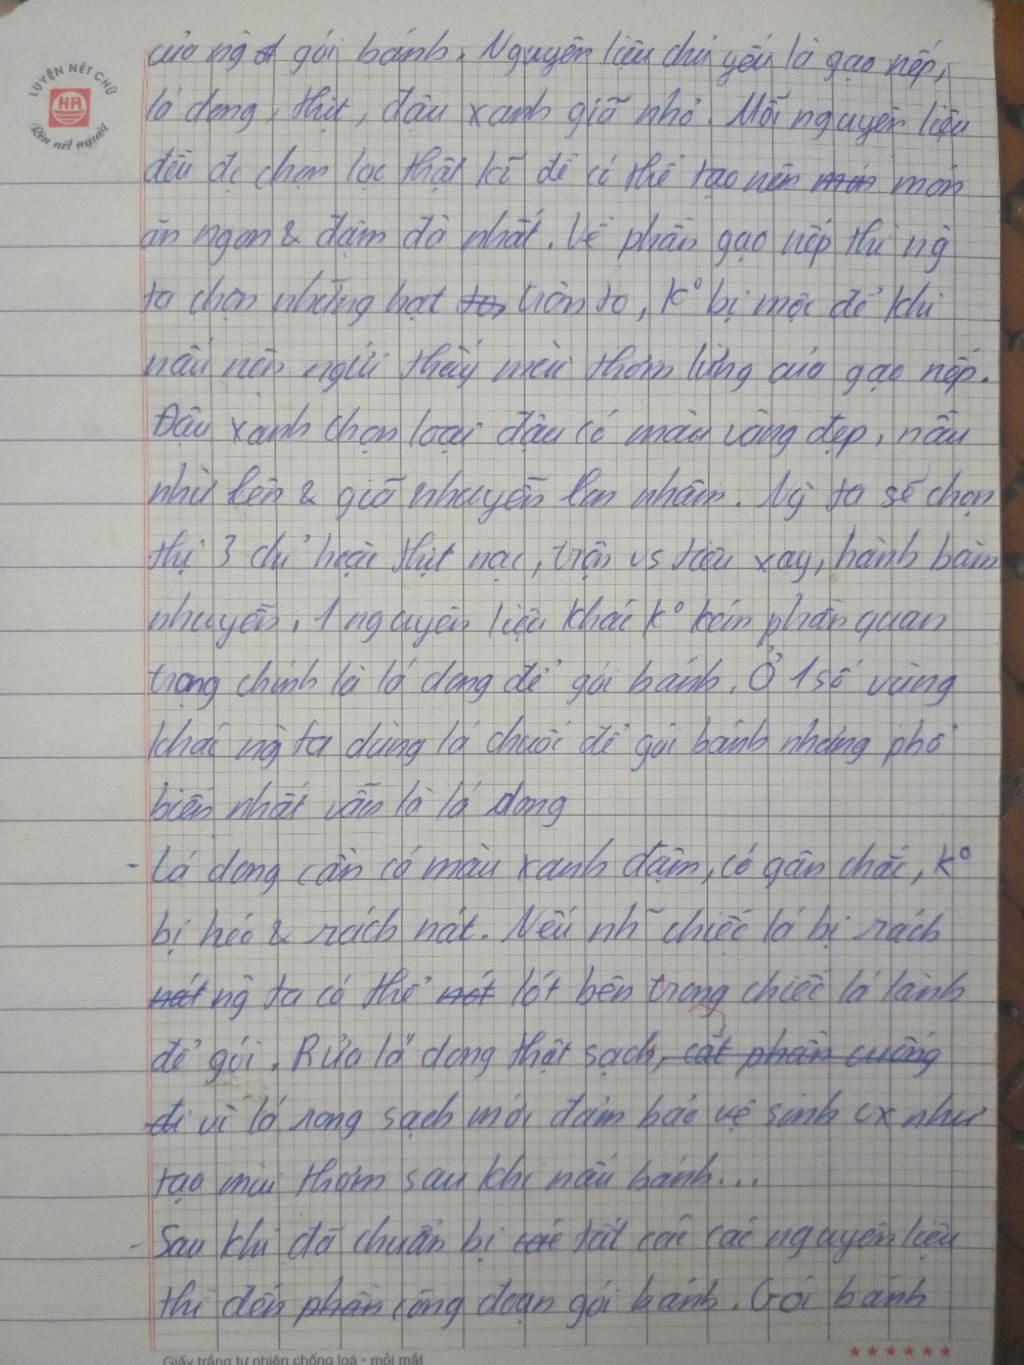 LUYỆN NÉT CHỮ
HA
Rèn nết người
của ng gói bánh. Nguyên liệu chủ yếu là gạo nếp,
lá dong, thịt, đậu xanh giã nhỏ. Mỗi nguyên liệu
đều đc chọn lọc thật kĩ để có thể tạo nên món
ăn ngon & đậm đà nhất. Về phần gạo nếp thì ng
ta chọn những hạt tròn to, k° bị mọc để khi
nấu nên ngửi thấy mùi thơm lừng của gạo nếp.
Đậu xanh chọn loại đậu có màu vàng đẹp, nấu
nhừ lên & giã nhuyễn làm nhâm. Ng ta sẽ chọn
thị 3 chỉ hoặc thịt nạc, trộn vs tiêu xay, hành băm
nhuyễn. 1 nguyên liệu khác k° kém phần quan
trọng chính là lá dong để gói bánh. Ở 1 số vùng
khác ng ta dùng lá chuối để gói bánh nhưng phổ
biến nhất vẫn là lá dong
- Lá dong cần có màu xanh đậm, có gân chắc, k°
bị héo & rách nát. Nếu nh~ chiếc lá bị rách
nát ng ta có thể lót bên trong chiếc lá lành
để gói. Rửa lá dong thật sạch, cắt phần cuống
đi vì lá rong sạch mới đảm bảo vệ sinh cx như
tạo mùi thơm sau khi nấu bánh...
- Sau khi đã chuẩn bị các tất các các nguyên liệu
thì đến phần công đoạn gói bánh. Gói bánh
Giấy trắng tự nhiên chống loá - mỏi mắt